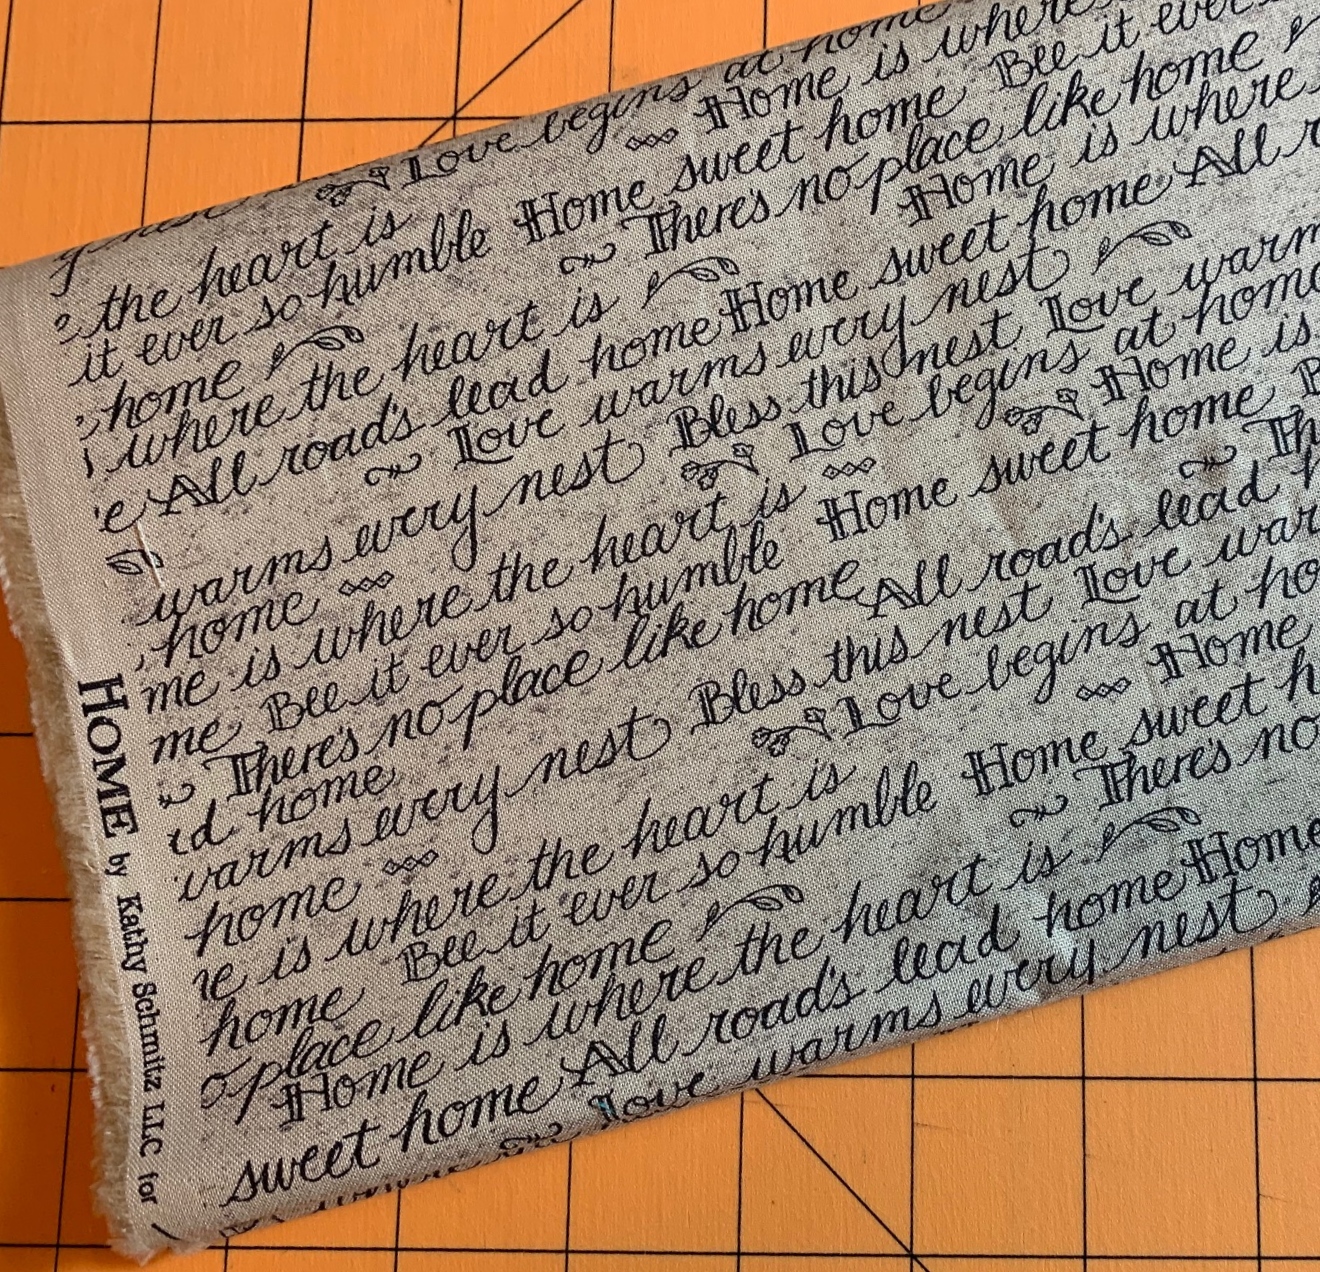 Love begins at home
the heart is Home is where
it ever so humble Home sweet home Bee it ever
home There's no place like home
where the heart is Home is where
All roads lead home Home sweet home All
Love warms every nest
warms every nest Bless this nest Love warm
home Love begins at home
me is where the heart is Home is
me Bee it ever so humble Home sweet home
There's no place like home
d home All roads lead
warms every nest Bless this nest Love war
home Love begins at ho
e is where the heart is Home
home Bee it ever so humble Home sweet h
o place like home There's no
Home is where the heart is
sweet home All roads lead home Home
Love warms every nest
HOME by Kathy Schmitz LLC for